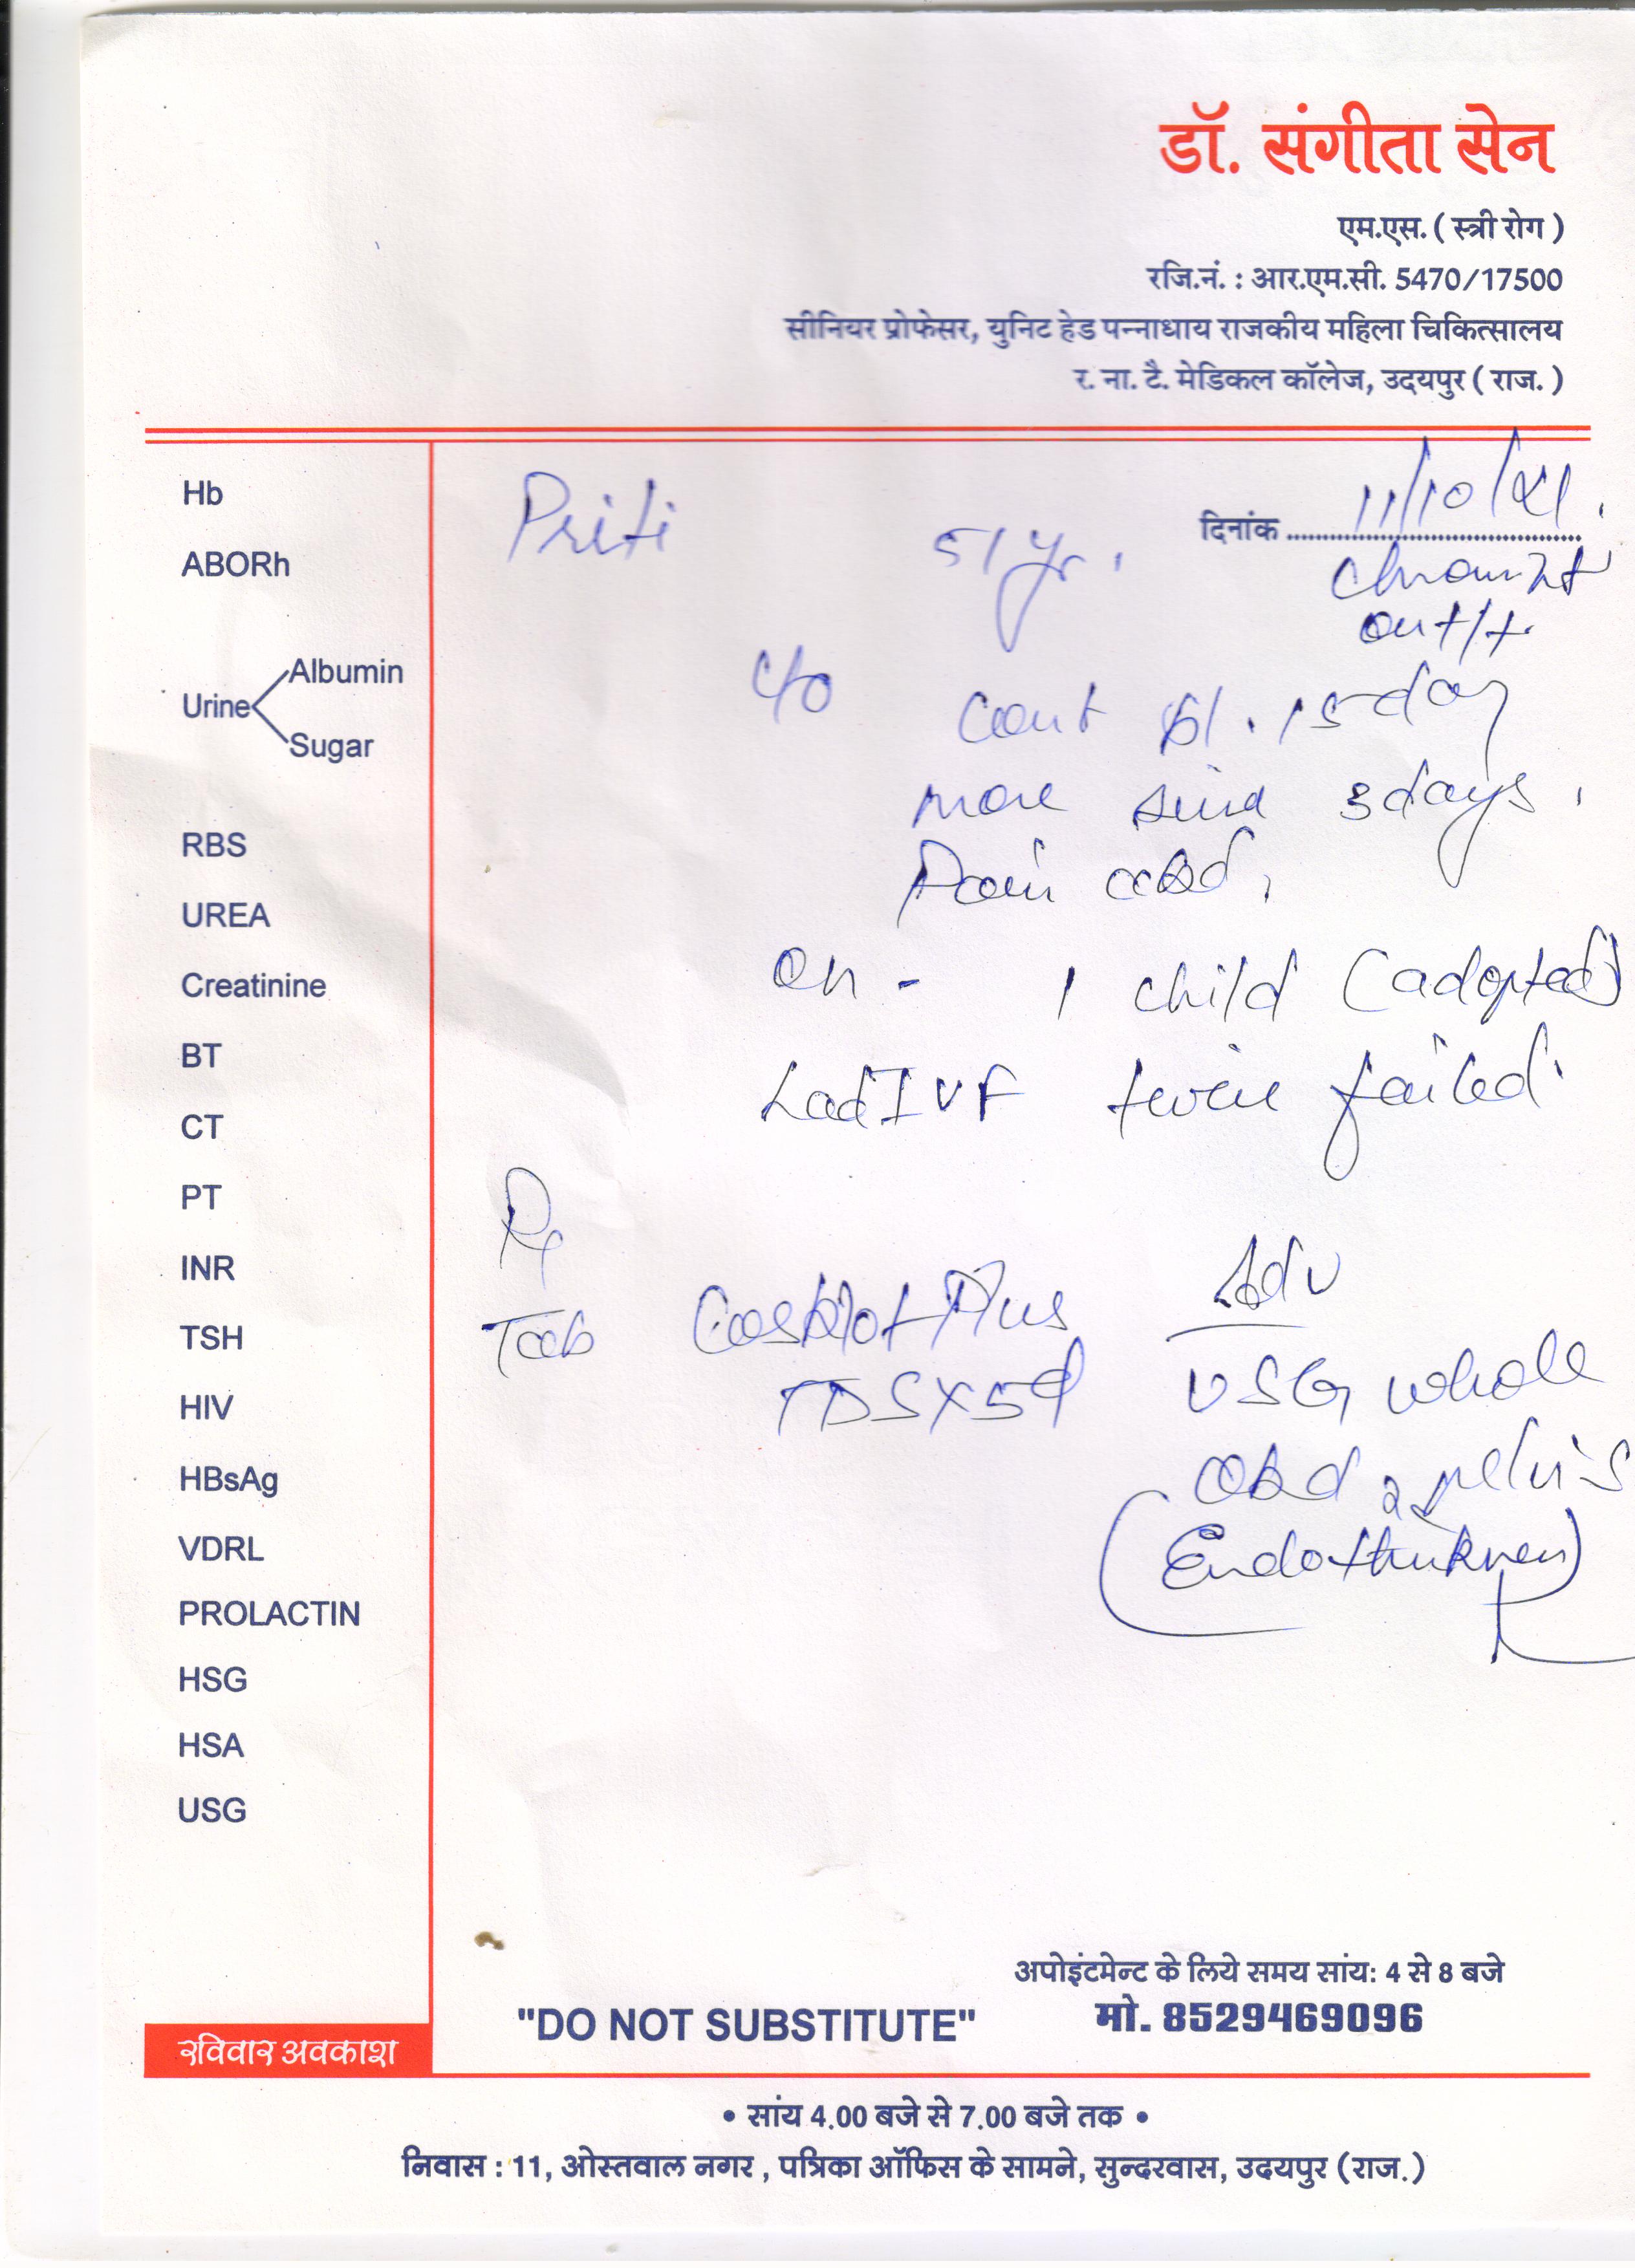 डॉ. संगीता सेन
एम.एस. ( स्त्री रोग )
रजि.नं. : आर.एम.सी. 5470/17500
सीनियर प्रोफेसर, युनिट हेड पन्नाधाय राजकीय महिला चिकित्सालय
र. ना. टै. मेडिकल कॉलेज, उदयपुर ( राज. )
Priti 51 yr. दिनांक 11/10/21.
c/o
bl. 15 day
more since 3 days.
Pain abd.
OH - 1 child (adopted)
had IVF twice failed.
Rx
Adv
Tab Plus
TDS x 5d USG whole
abd & pelvis
(Endothickness)
Hb
ABORh
Urine
Albumin
Sugar
RBS
UREA
Creatinine
BT
CT
PT
INR
TSH
HIV
HBsAg
VDRL
PROLACTIN
HSG
HSA
USG
अपोइंटमेन्ट के लिये समय सांय: 4 से 8 बजे
"DO NOT SUBSTITUTE" मो. 8529469096
रविवार अवकाश
• सांय 4.00 बजे से 7.00 बजे तक •
निवास : 11, ओस्तवाल नगर , पत्रिका ऑफिस के सामने, सुन्दरवास, उदयपुर (राज.)